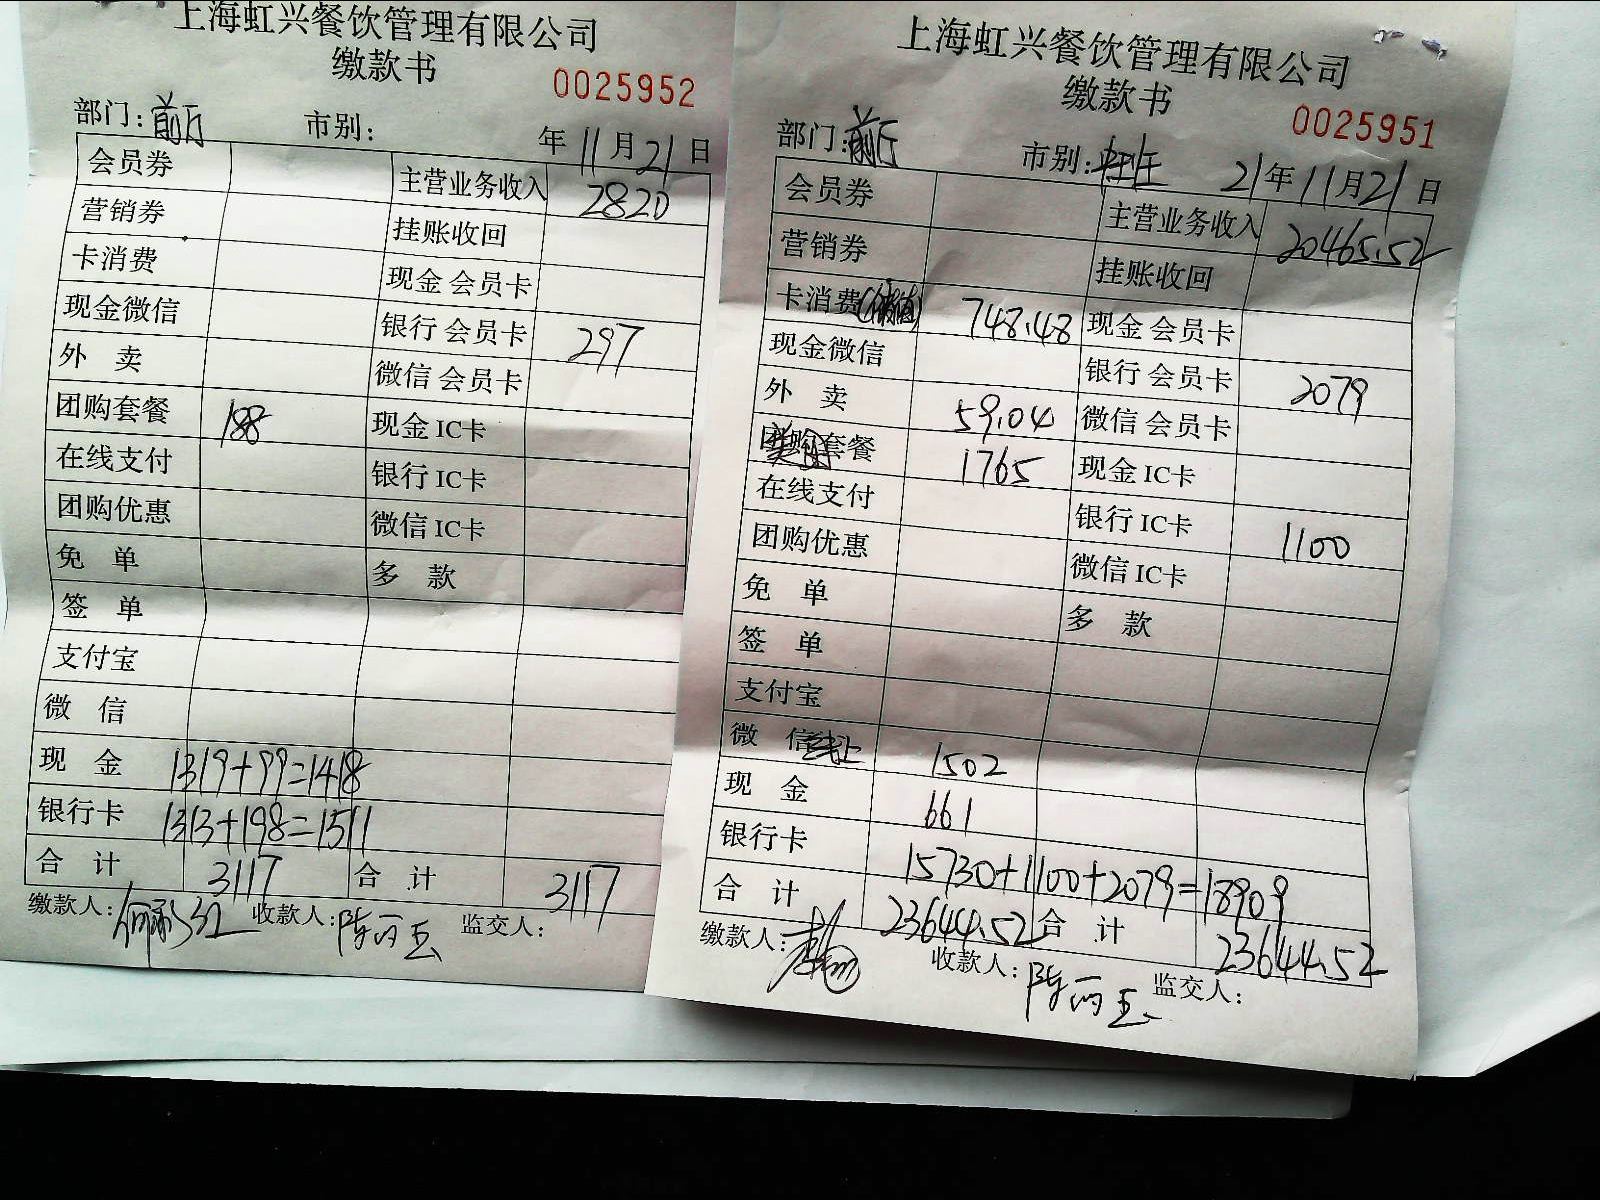 上海虹兴餐饮管理有限公司
缴款书 0025952
部门: 前厅 市别: 年11月21日
会员券 主营业务收入 2820
营销券 挂账收回
卡消费 现金 会员卡
现金微信 银行 会员卡 297
外 卖 微信 会员卡
团购套餐 188 现金 IC卡
在线支付 银行 IC卡
团购优惠 微信 IC卡
免 单 多 款
签 单
支付宝
微 信
现 金 1319+99=1418
银行卡 1313+198=1511
合 计 3117 合 计 3117
缴款人: 收款人: 陈丽玉 监交人:
上海虹兴餐饮管理有限公司
缴款书 0025951
部门: 前厅 市别: 21年11月21日
会员券 主营业务收入 20465.52
营销券 挂账收回
卡消费(储值) 748.48 现金 会员卡
现金微信 银行 会员卡 2079
外 卖 59.04 微信 会员卡
团购套餐 1765 现金 IC卡
在线支付 银行 IC卡 1100
团购优惠 微信 IC卡
免 单 多 款
签 单
支付宝
微 信线上 1502
现 金 661
银行卡 15730+1100+2079=18909
合 计 23644.52 合 计 23644.52
缴款人: 收款人: 陈丽玉 监交人: